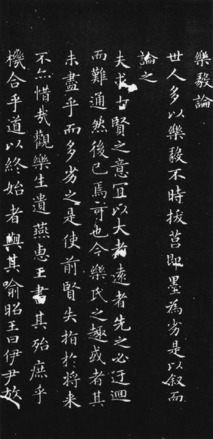 樂毅論
世人多以樂毅不時拔莒即墨為劣是以叙而
論之
夫求古賢之意宜以大者遠者先之必迂迴
而難通然後已焉可也今樂氏之趣或者其
未盡乎而多劣之是使前賢失指於将来
不亦惜哉觀樂生遺燕惠王書其殆庶乎
機合乎道以終始者與其喻昭王曰伊尹放